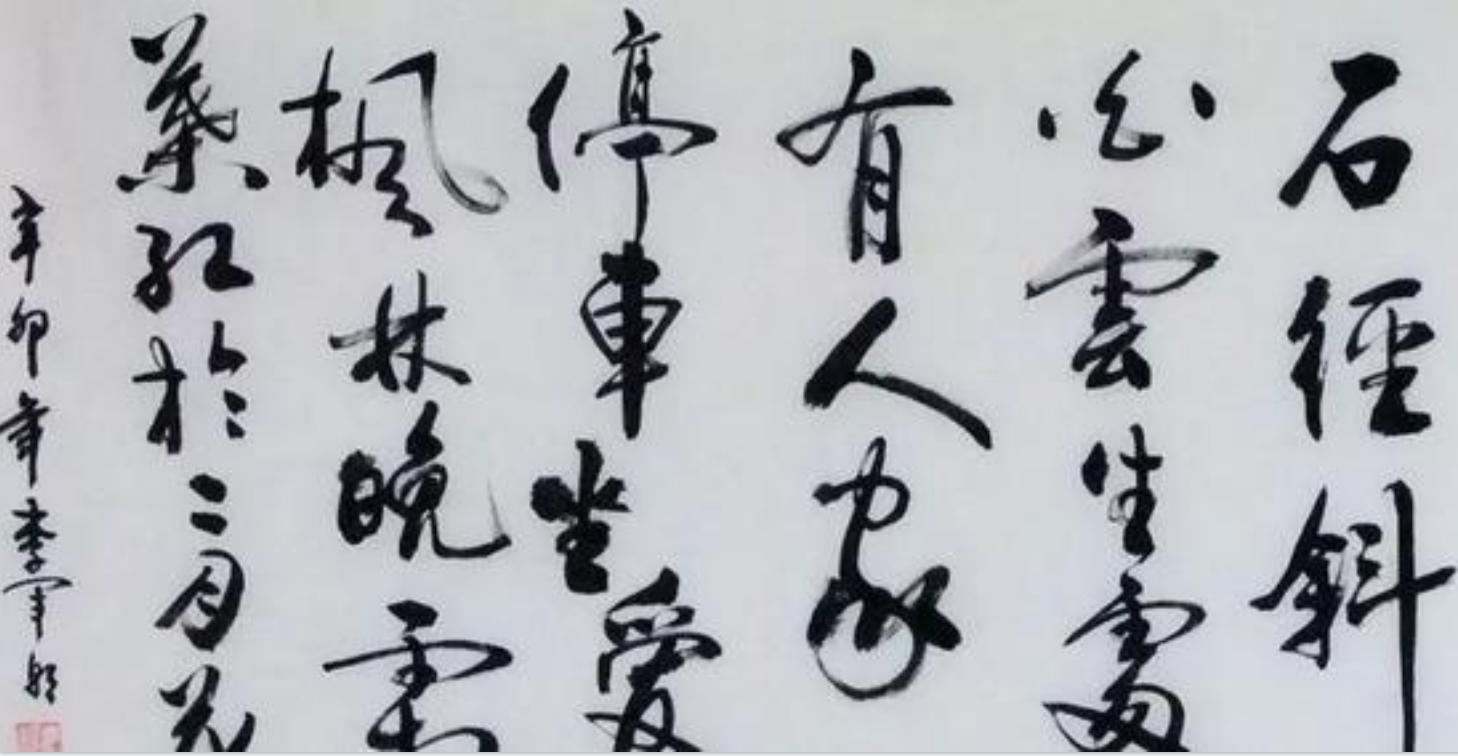 石徑斜
白雲生處
有人家
停車坐愛
楓林晚霜
葉紅於二月花
辛卯年李軍